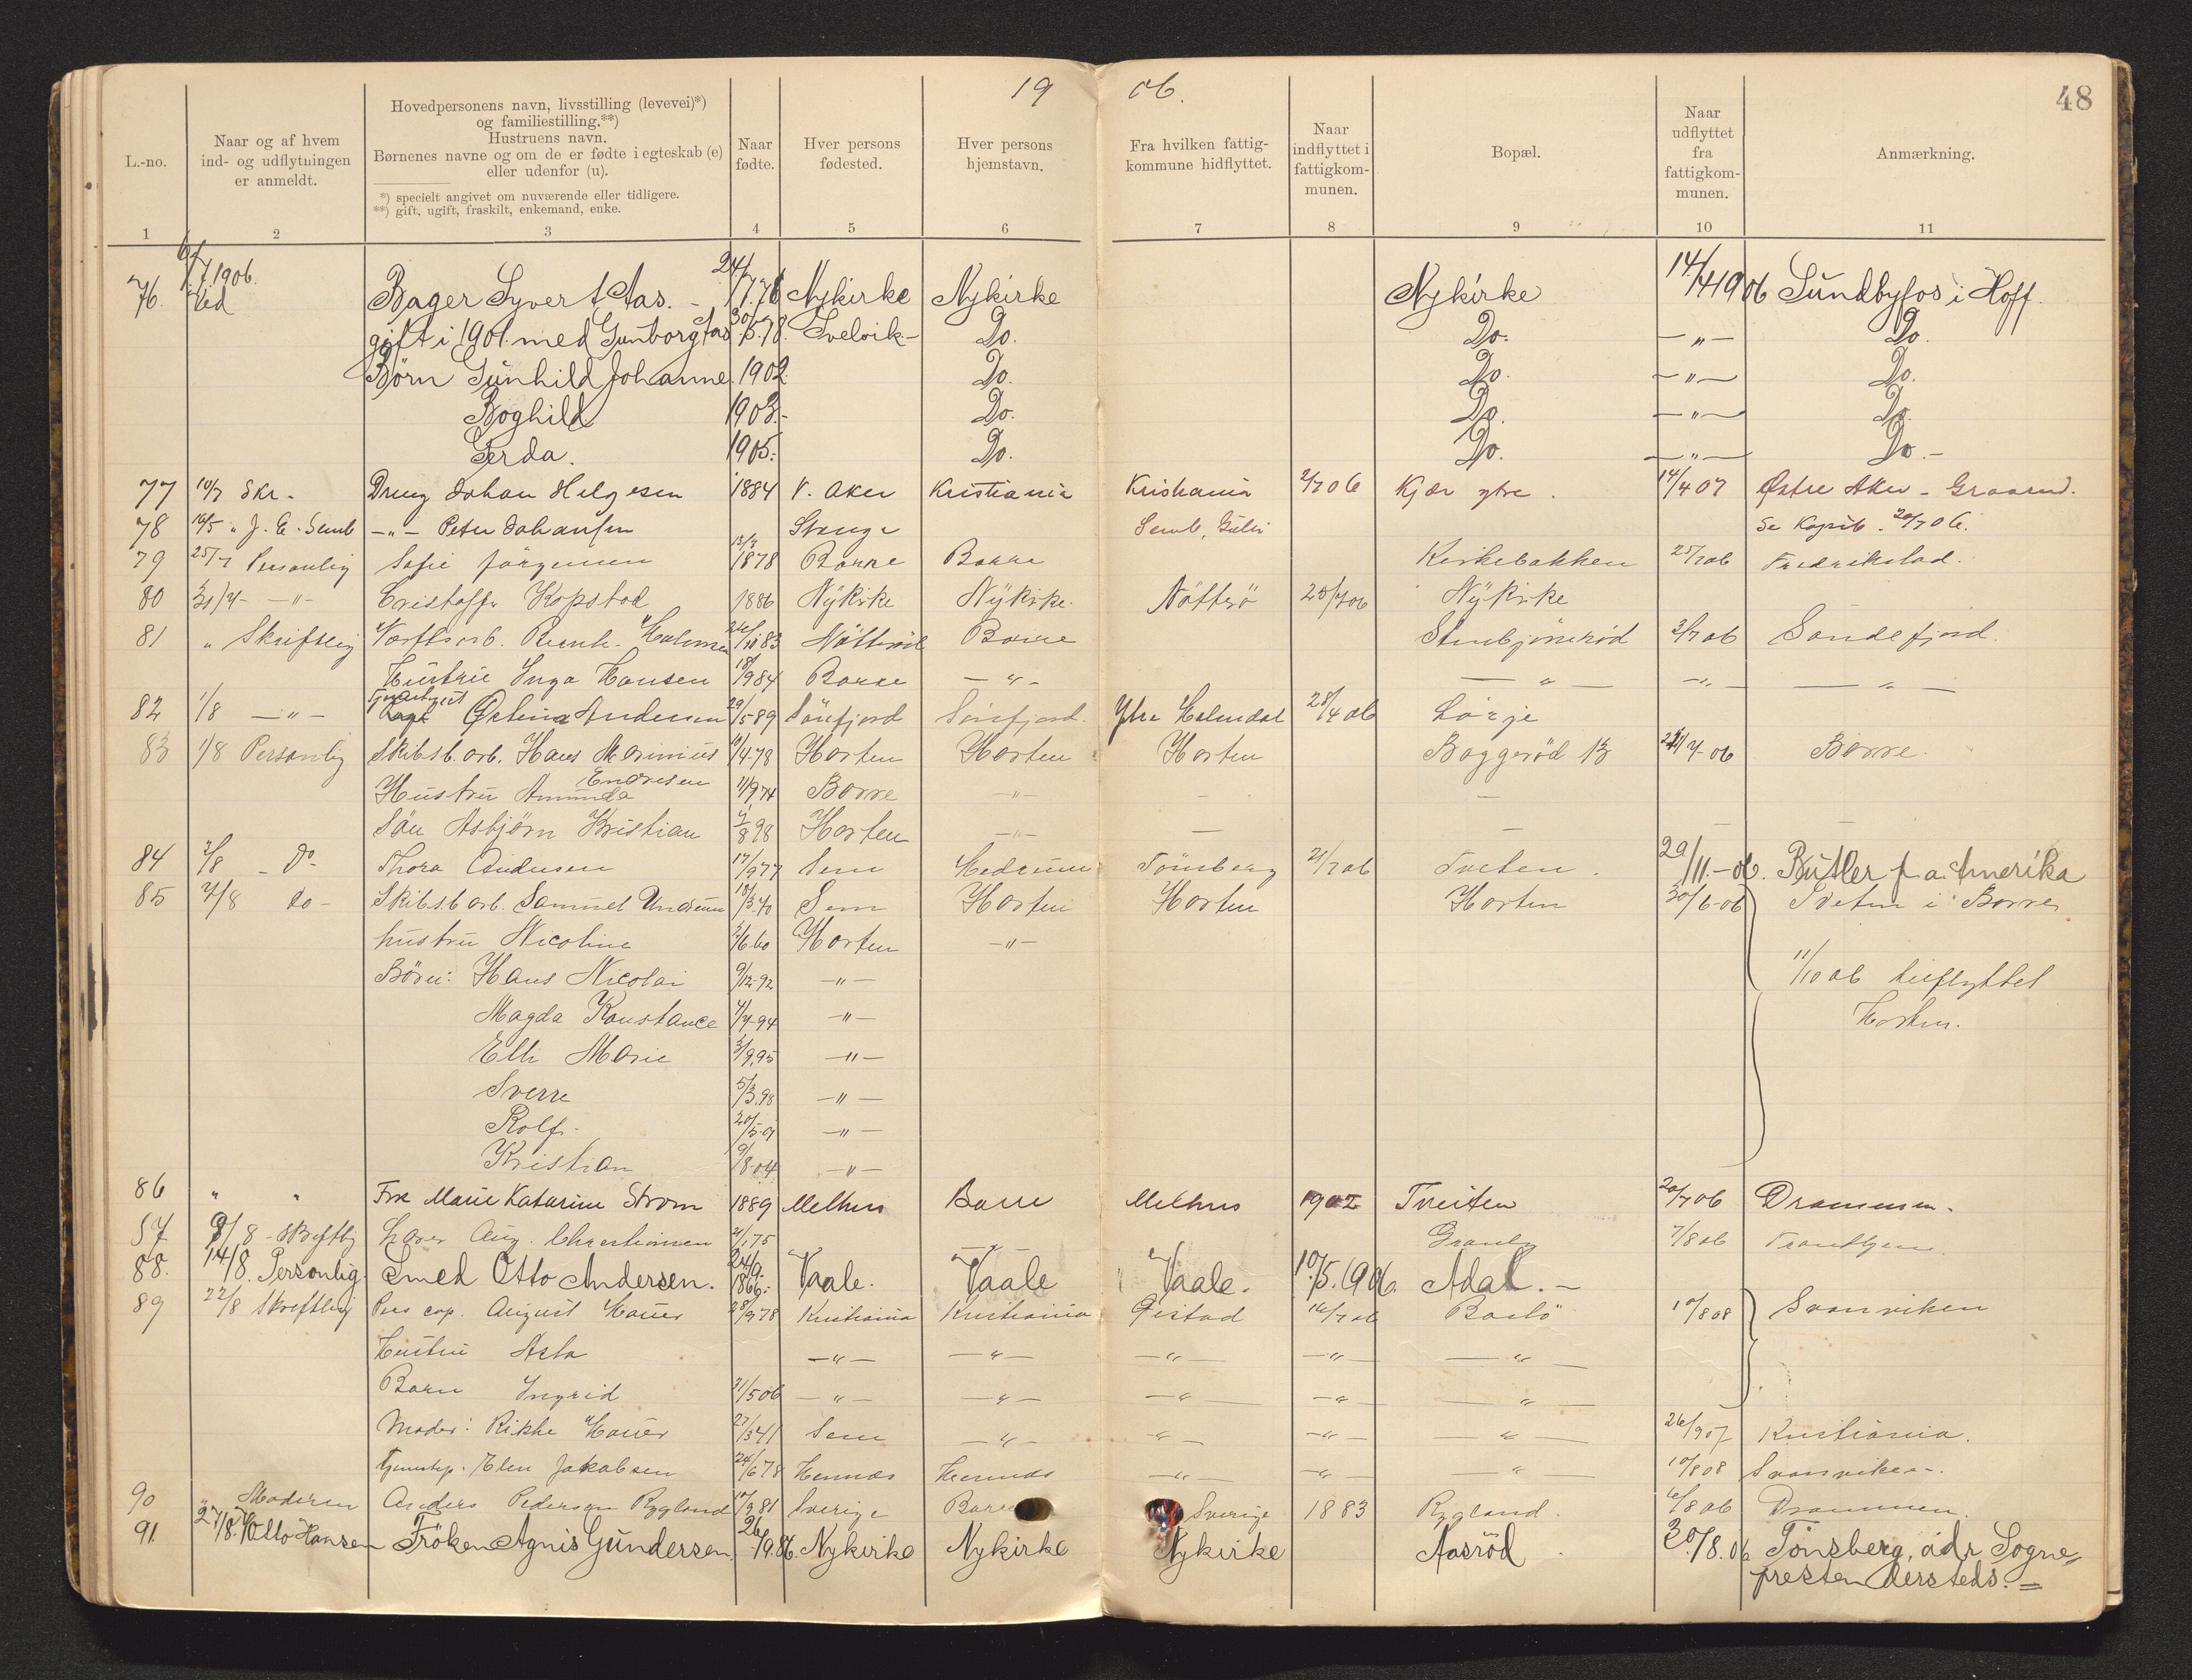 19 06.
48
L.-no.
Naar og af hvem ind- og udflytningen er anmeldt.
Hovedpersonens navn, livsstilling (levevei)*) og familiestilling.**)
Hustruens navn.
Børnenes navne og om de er fødte i egteskab (e) eller udenfor (u).
*) specielt angivet om nuværende eller tidligere.
**) gift, ugift, fraskilt, enkemand, enke.
Naar fødte.
Hver persons fødested.
Hver persons hjemstavn.
Fra hvilken fattigkommune hidflyttet.
Naar indflyttet i fattigkommunen.
Bopæl.
Naar udflyttet fra fattigkommunen.
Anmærkning.
1 2 3 4 5 6 7 8 9 10 11
76. 6/7 1906. Ved Bager Syvert Aas. - 24/1.76 Nykirke Nykirke Nykirke 14/4 1906 Sundbyfos i Hoff.
gift i 1901. med Gunborg Aas 30/5.78. Svelvik- Do. Do. -„- Do.
Børn Gunhild Johanne. 1902. Do. Do. -„- Do.
Boghild 1903.- Do. Do. -„- Do.
Gerda. 1905.- Do. Do. -„- Do.-
77 10/7 Skr. Dreng Johan Helgesen 1884 V. Aker Kristiania Kristiania 2/7 06 Kjær ytre. 14/4 07 Østre Aker -
78 16/5 „ J. E. Semb -„- Peter Johansen Stange Semb, Se Kopib. 20/7 06.
79 25/7 Personlig Sofie Jørgensen 13/7 1878 Borre Borre Kirkebakken 25/7 06 Fredrikstad.
80 31/7 -„- Cristoffer Kopstad 1886 Nykirke Nykirke. Nøtterø 20/7 06 Nykirke
81 „ Skriftlig Værftsarb. Holmsen 24/10 83 Nøtterø Borre Stenbjørnrød 3/7 06 Sandefjord.
Hustru Inga Hansen 18/9 84 Borre -„- -„- -„- -„-
82 1/8 -„- Østina Andersen 29/5 89 Sønfjord Sønfjord. Ytre Holmedal 28/4 06 Lørje
83 1/8 Personlig Skibsb. arb. Hans Marinius Endresen 10/4-78 Horten Horten Horten Baggerød 13 24/7-06 Borre.
Hustru Amunda 11/9 74 Borre -„- - -
Søn Asbjørn Kristian 4/8 98 Horten -„- - - - -
84 2/8 - Do Thora Andersen 17/9 77 Sem Hedrum Tønsberg 21/7 06 Tveten. 29/11.-06. Butler p. a. Amerika
85 7/8 do- Skibsb. arb. Samuel Andersen 18/3.40 Sem Horten Horten Horten 30/6-06 Tveten i Borre
hustru Nicoline 3/6.60 Horten -„-
Børn: Hans Nicolai 9/12-92 -„- 11/10 06 tilflyttet
Magda Konstance 4/7-94 -„- Horten.
Elli Marie 3/9.95 -„-
Sverre 5/3.98 -„-
Rolf. 20/5-01 -„-
Kristian 9/8.04 -„-
86 „ „ Frk Marie Katarine Strøm 1889 Melhus Borre Melhus 1902 Tveiten 20/7 06 Drammen.
87 9/8 - Skriftlig Aug. Christiansen 21/1 75 Granly 7/8 06 Trondhjem.
88. 14/8. Personlig. Smed Otto Andersen. 24/9. 1866. Vaale. Vaale Vaale. 10/5. 1906. Adal.-
89 22/8 Skriftlig Prescap. August Hauer 28/9 78 Kristiania Kristiania Gistad 14/7 06 Bastø 10/8 08 Svanviken
Hustru Asta -„- -„- -„- -„- -„-
Barn Ingrid 31/5 06 -„- -„- -„- -„- -„-
Moder: Rikke Hauer 27/3 41 Sem -„- -„- -„- -„- 26/9 07 Kristiania.
Elen Jakobsen 24/6 78 Hemnæs Hemnæs -„- -„- -„- 10/8 08 Svanviken.
90 „ Moderen Anders Pedersen Rygland 10/9 81 Sverige Borre Sverige 1883 Rygland. 6/8 06 Drammen.
91. 27/8. Otto Hansen Frøken Agnis Gundersen. 26/9.86. Nykirke Nykirke Nykirke Aasrød. 30/8.06 Tønsberg, adr Sogne-
presten Aersteds.=